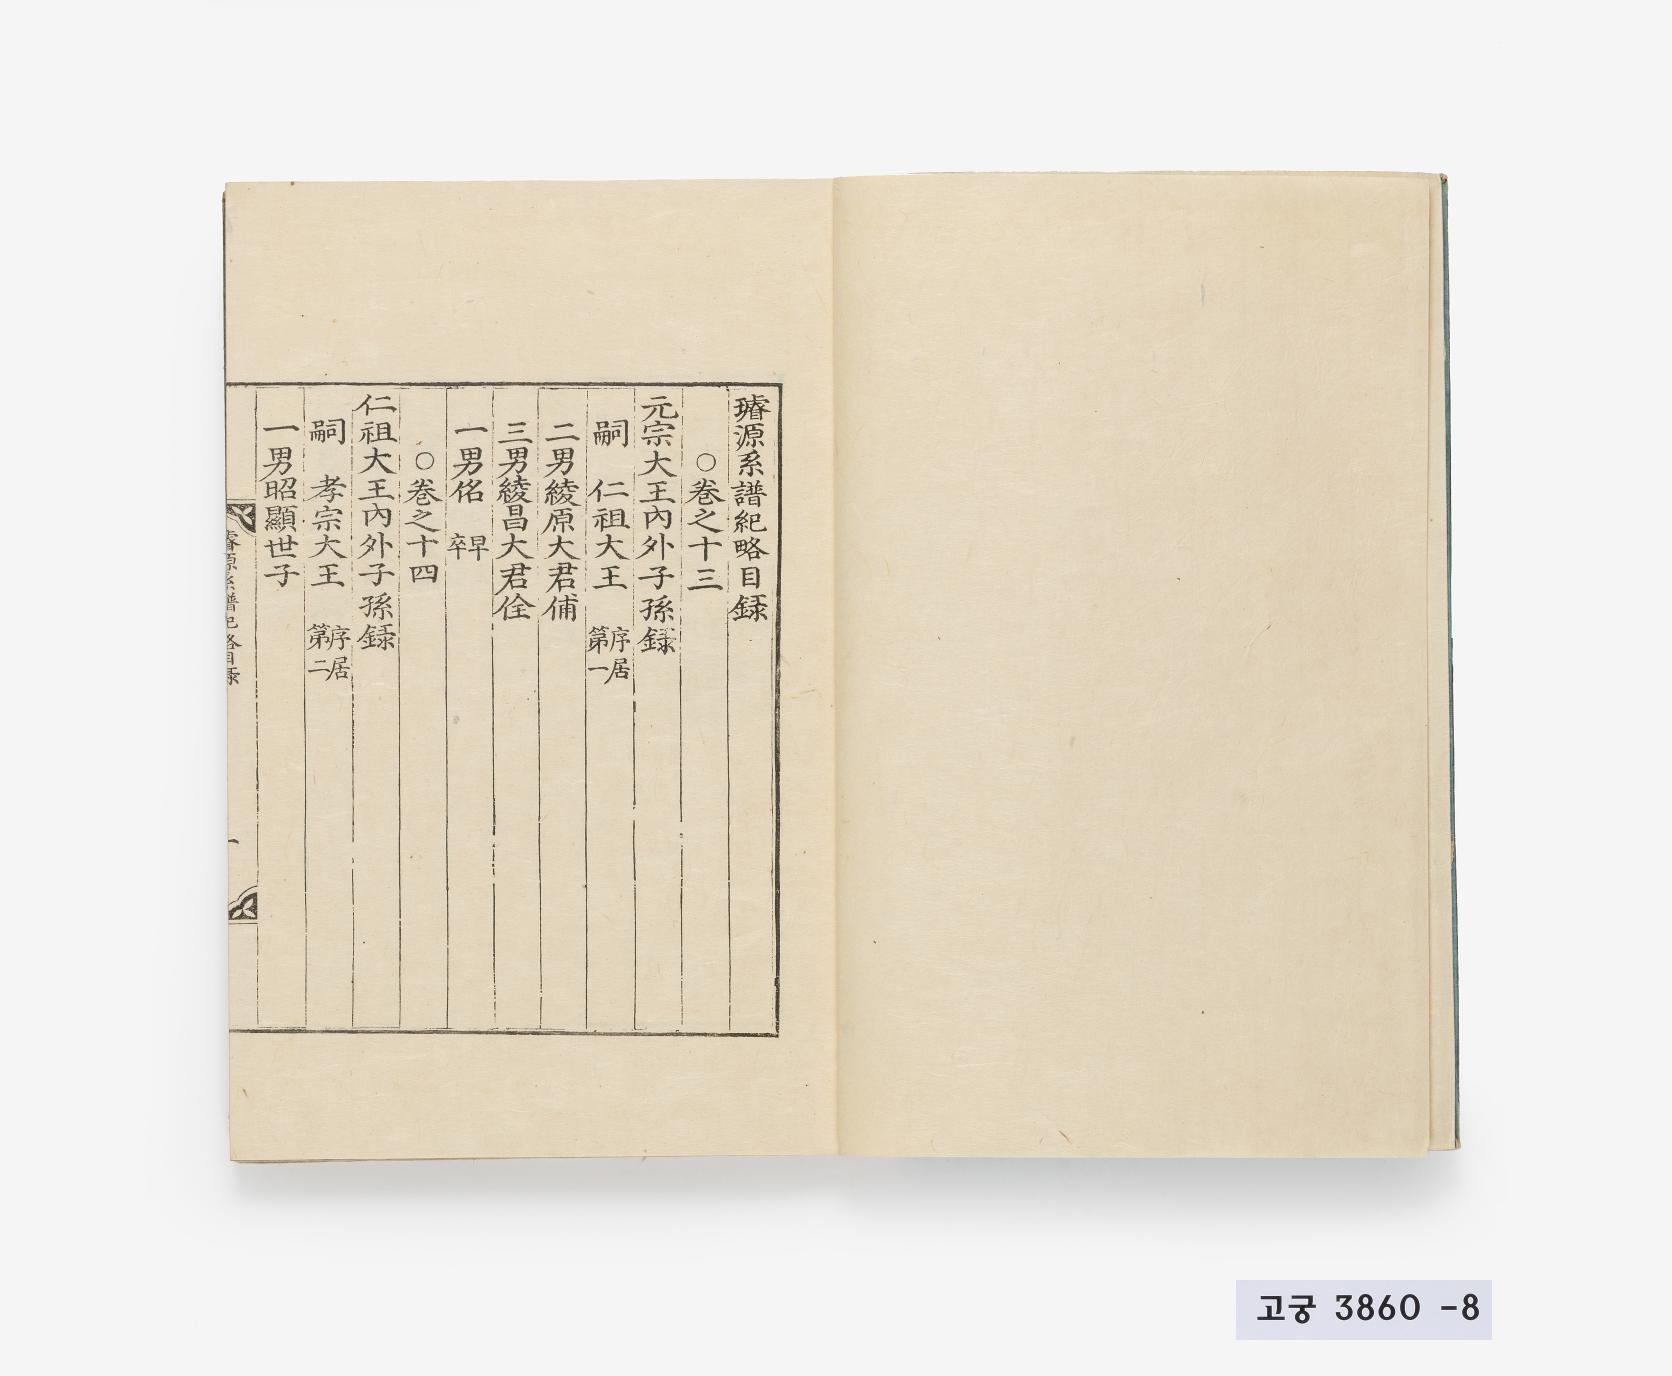 璿源系譜紀略目録
○卷之十三
元宗大王內外子孫録
嗣 仁祖大王 序居第一
二男綾原大君俌
三男綾昌大君佺
一男佲 早卒
○卷之十四
仁祖大王內外子孫録
嗣 孝宗大王 序居第二
一男昭顯世子
璿源系譜紀略目録 一
고궁 3860 -8